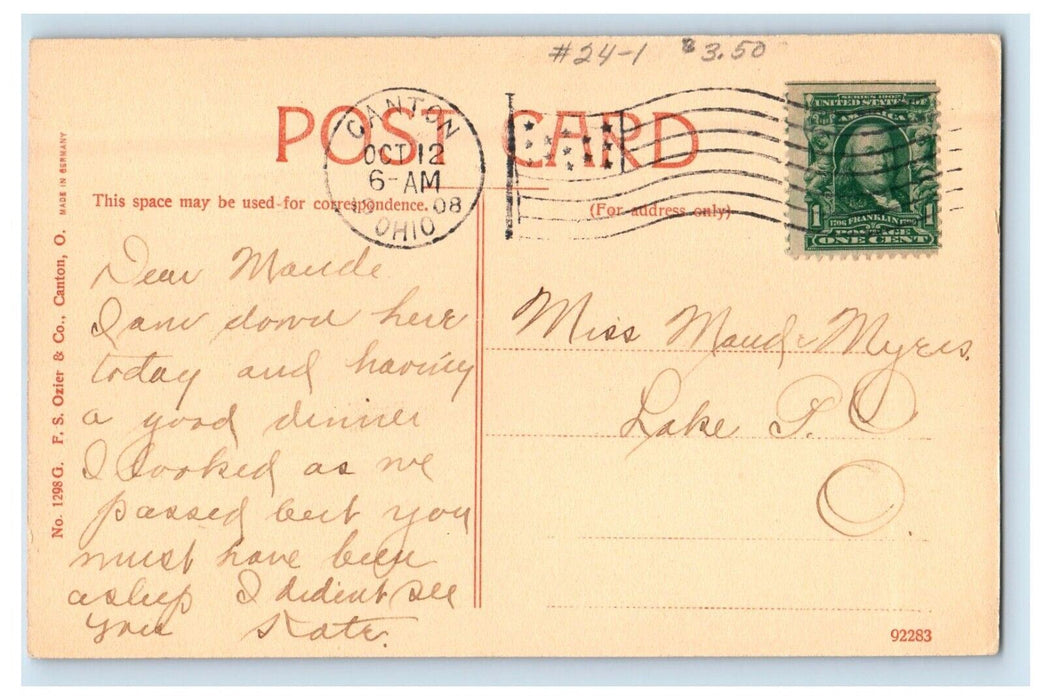 #24-1 $3.50
POST CARD
CANTON
OCT 12
6-AM
08
OHIO
SERIES 1902
UNITED STATES OF
AMERICA
1 FRANKLIN 1
POSTAGE
ONE CENT
This space may be used for correspondence.
(For address only)
MADE IN GERMANY
No. 1298 G. F. S. Ozier & Co., Canton, O.
Dear Maude
I am down here
today and having
a good dinner
I looked as we
passed but you
must have been
asleep I dident see
you Kate.
Miss Maude Myers.
Lake P. O
O
92283